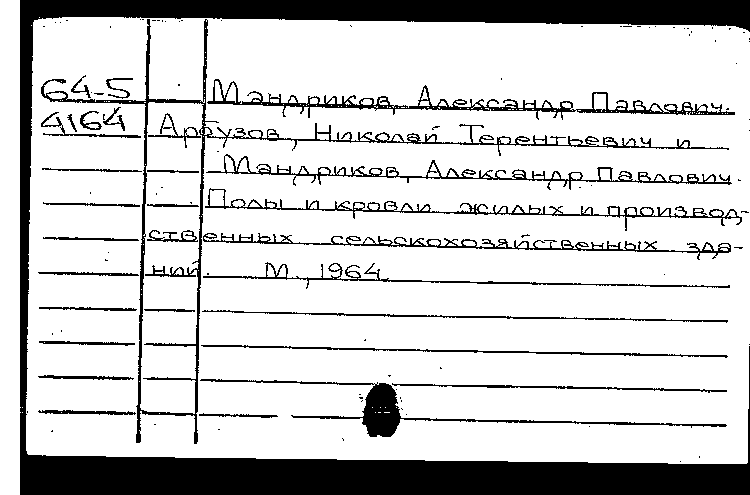 64-5 Мандриков, Александр Павлович.
4164 Арбузов, Николай Терентьевич и
Мандриков, Александр Павлович.
Полы и кровли жилых и производ-
ственных сельскохозяйственных зда-
ний. М., 1964